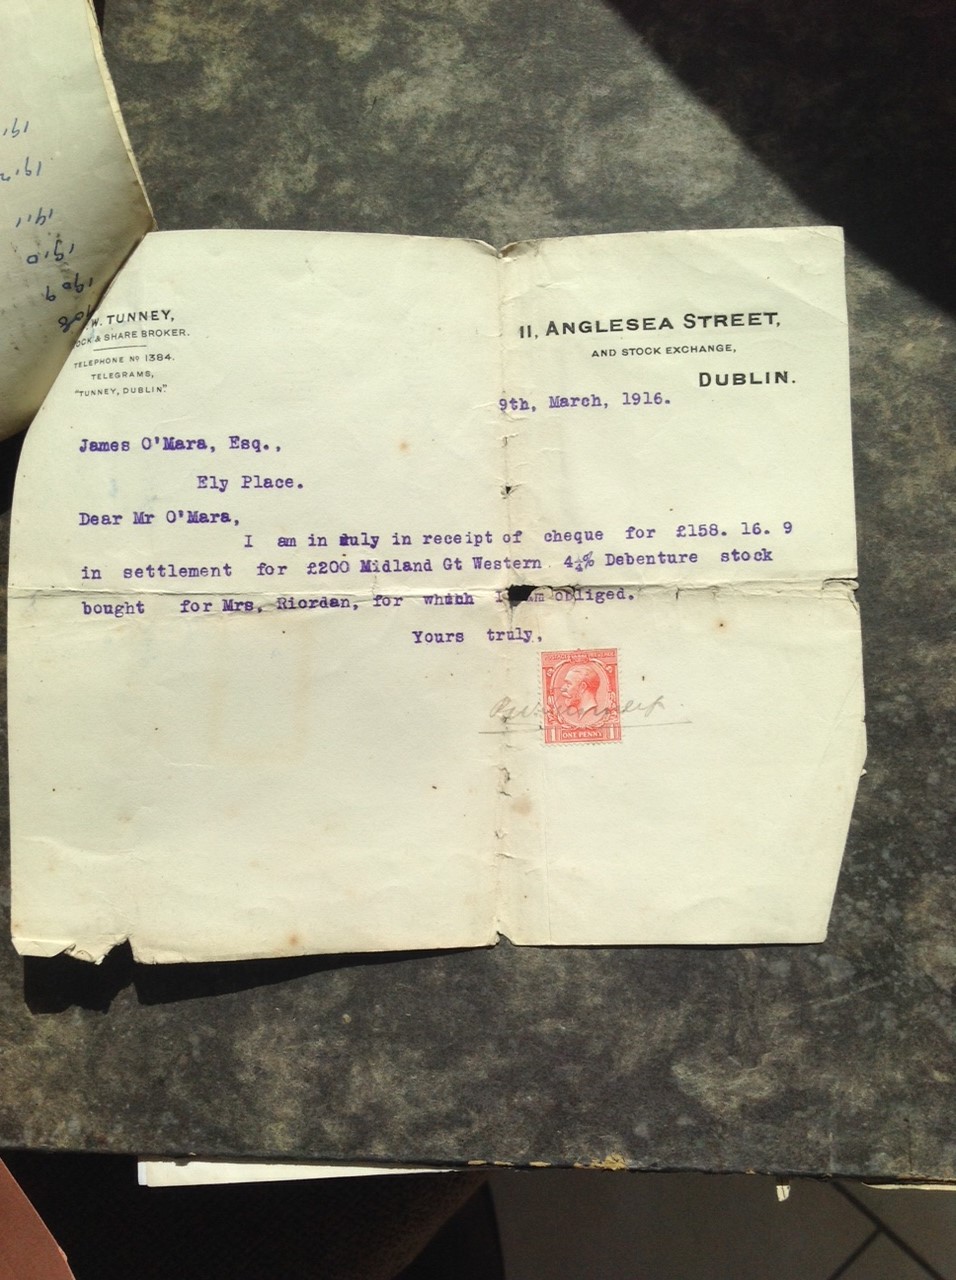 W. TUNNEY,
OCK & SHARE BROKER.
TELEPHONE No 1384.
TELEGRAMS,
"TUNNEY, DUBLIN."
11, ANGLESEA STREET,
AND STOCK EXCHANGE,
DUBLIN.
9th, March, 1916.
James O'Mara, Esq.,
Ely Place.
Dear Mr O'Mara,
I am in duly in receipt of cheque for £158. 16. 9
in settlement for £200 Midland Gt Western 4¼% Debenture stock
bought for Mrs, Riordan, for which I am obliged.
Yours truly,
1 ONE PENNY 1
1912
1911
1910
1909
1908